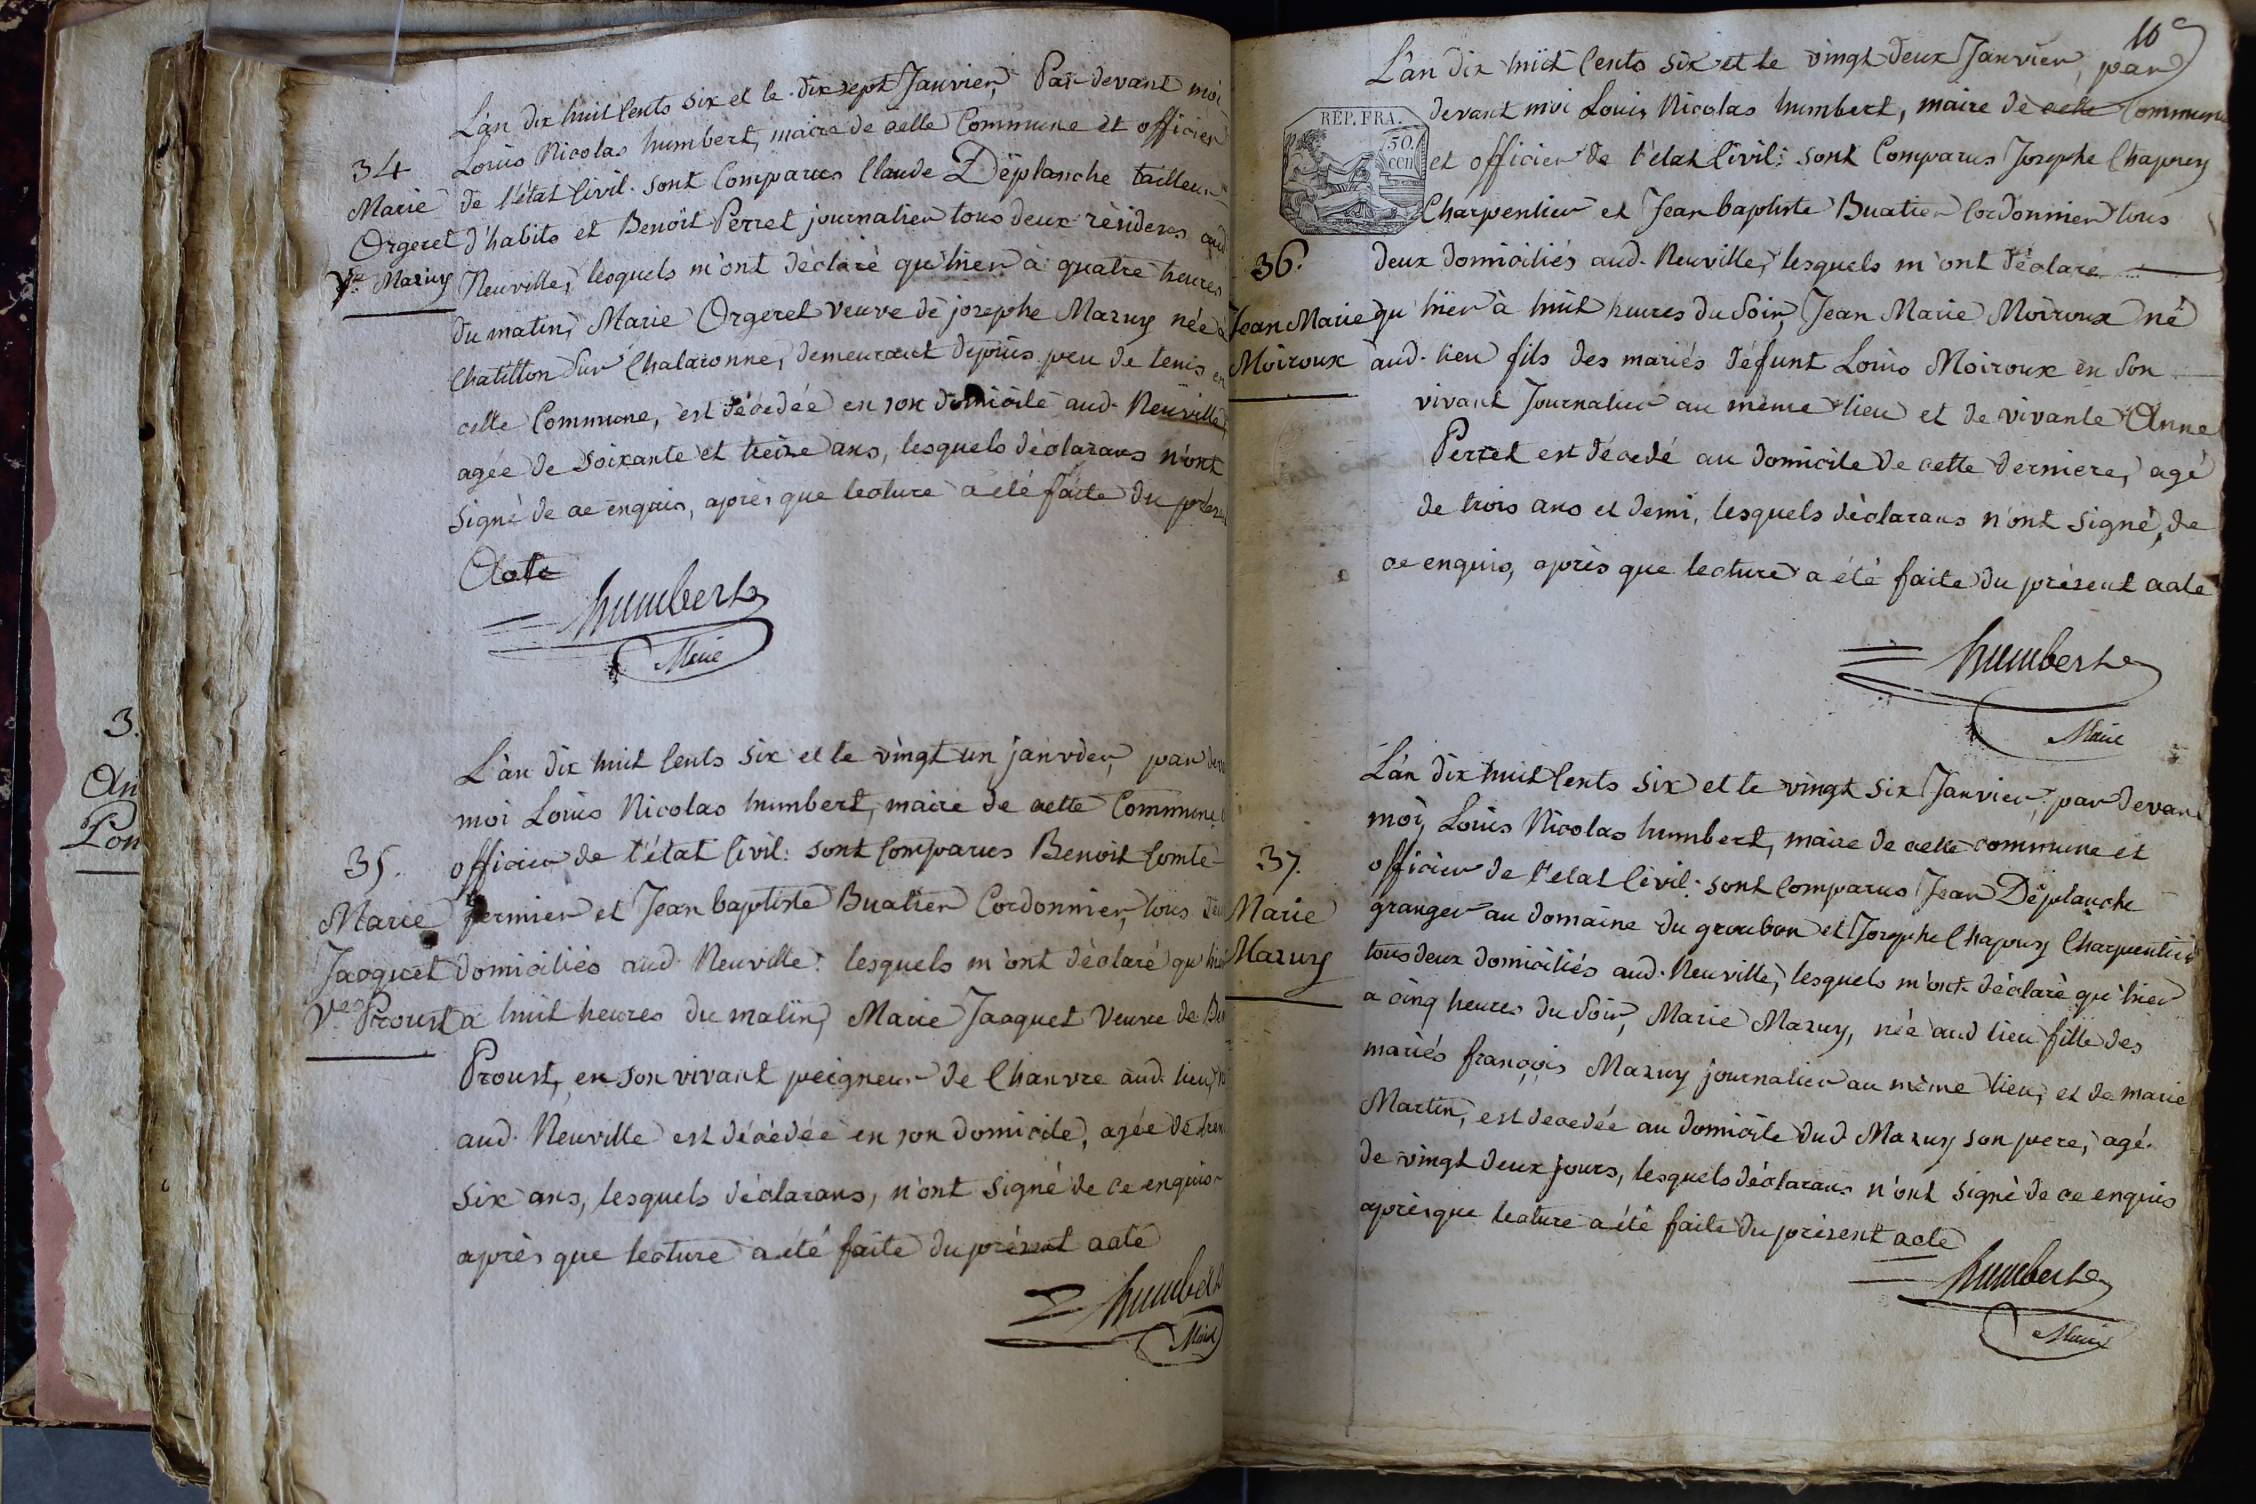 L'an dix huit Cents six et le dix sept Janvier, Par devant moi
Louis Nicolas humbert, maire de cette Commune et officier
34
Marie
Orgeret
Ve. Mazuy
de l'état Civil. sont Comparus Claude Déplanche tailleur
d'habits et Benoit Perret journalier tous deux résidens aud
Neuville, lesquels m'ont déclaré qu'hier à quatre heures
du matin, Marie Orgeret veuve de josephe Mazuy née à
Chatillon sur Chalaronne, demeurant depuis peu de tems en
cette Commune, est décedée en son domicile aud. Neuville,
agée de soixante et treize ans, lesquels déclarans n'ont
signé de ce enquis, après que lecture a été faite du présent
Acte
humbert
Maire
L'an dix huit Cents six et le vingt un janvier, par devt
moi Louis Nicolas humbert, maire de cette Commune
35.
Marie
Jacquet
Ve. Proust
officier de l'état Civil: sont Comparus Benoit Comte
fermier et Jean baptiste Buatier Cordonnier, tous deux
domiciliés aud. Neuville: lesquels m'ont déclaré qu'hier
a huit heures du matin, Marie Jacquet Veuve de
Proust, en son vivant peigneur de Chanvre aud. lieu,
aud. Neuville est décédée en son domicile, agée de
six ans, lesquels déclarans, n'ont signé de ce enquis
après que lecture a été faite du présent acte
humbert
Maire
3.
An
Pon
10
L'an dix huit Cents six et le vingt deux Janvier, par
REP. FRA.
50.
cen
devant moi Louis Nicolas humbert, maire de cette Commune
et officier de l'état Civil: sont Comparus Josephe Chapuy
Charpentier et Jean baptiste Buatier Cordonnier tous
36.
Jean Marie
Moiroux
deux domiciliés aud. Neuville, lesquels m'ont déclaré
qu'hier à huit heures du soir, Jean Marie Moiroux né
aud. lieu fils des mariés défunt Louis Moiroux en son
vivant Journalier au même lieu et de vivante Anne
Perret est décedé au domicile de cette derniere, agé
de trois ans et demi, lesquels déclarans n'ont signé, de
ce enquis, après que lecture a été faite du présent acte
humbert
Maire
L'an dix huit Cents six et le vingt six Janvier, par devant
moi, Louis Nicolas humbert, maire de cette commune et
37.
Marie
Mazuy
officier de l'etat Civil: sont Comparus Jean Déplanche
granger au domaine du groubon et Josephe Chapuy Charpentier
tous deux domiciliés aud. Neuville, lesquels m'ont déclaré qu'hier
a cinq heures du soir, Marie Mazuy, née aud lieu fille des
mariés françois Mazuy journalier au même lieu, et de marie
Martin, est decedée au domicile dud. Mazuy son pere, agé.
de vingt deux jours, lesquels déclarans n'ont signé de ce enquis
après que lecture a été faite du présent acte
humbert
Maire